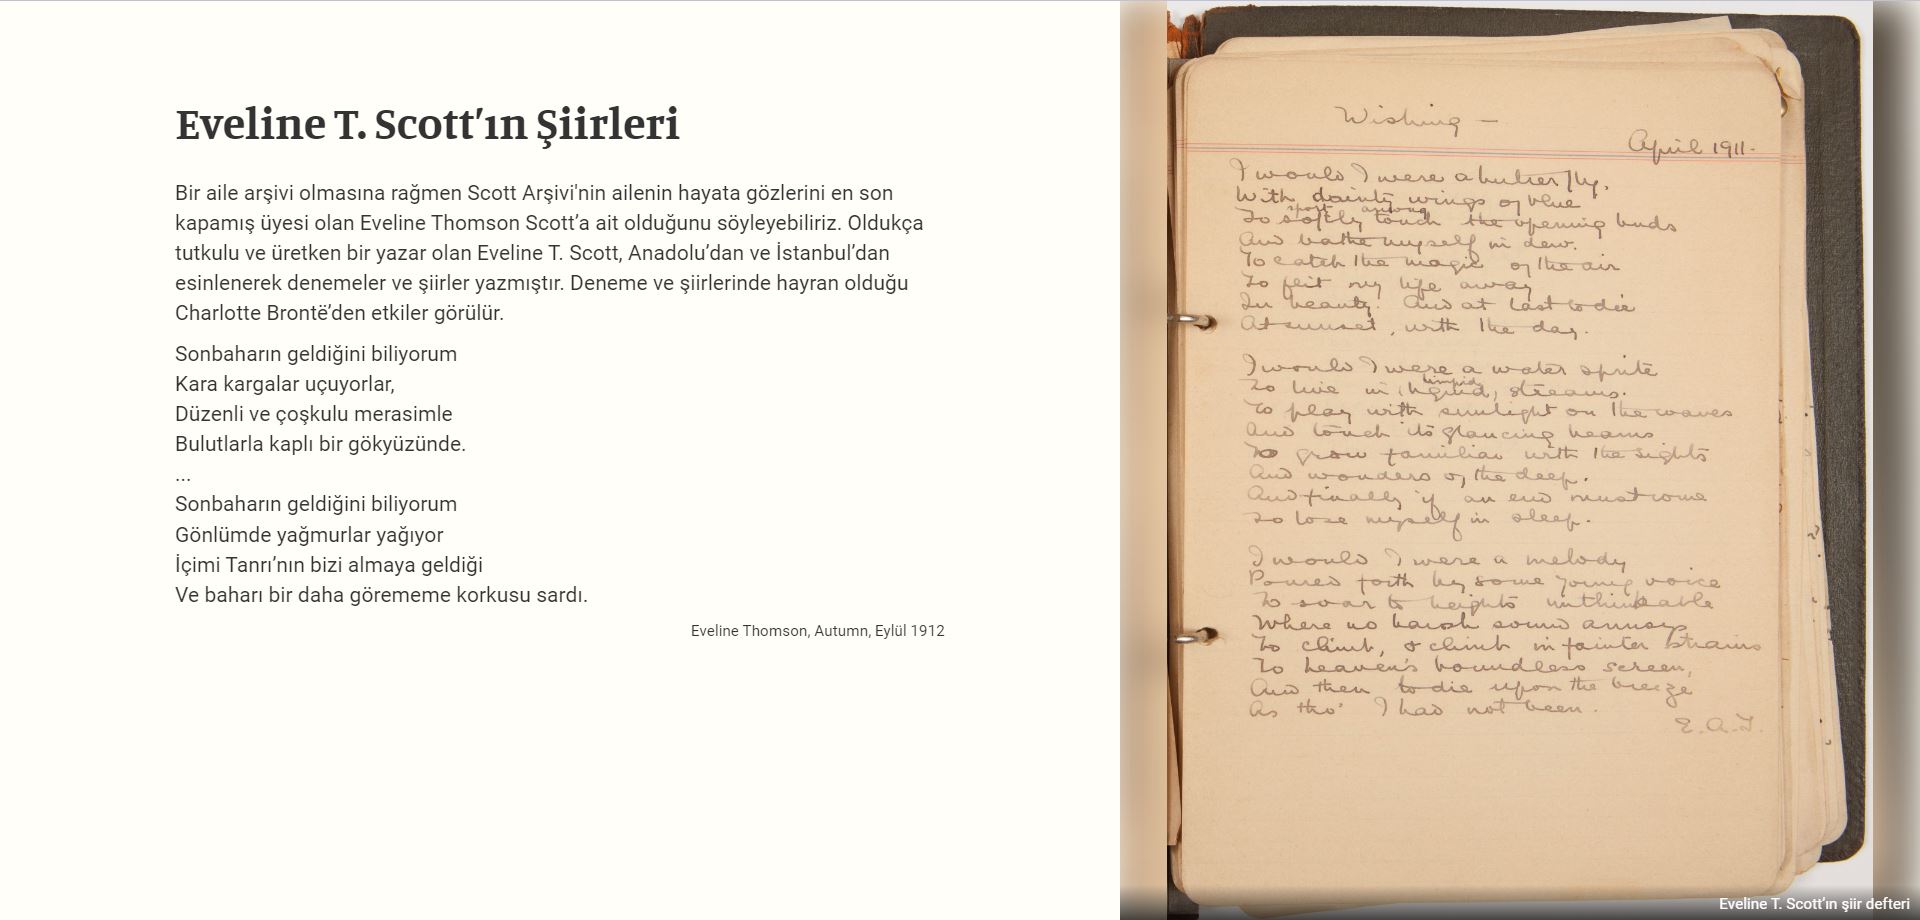 Eveline T. Scott’ın Şiirleri
Bir aile arşivi olmasına rağmen Scott Arşivi'nin ailenin hayata gözlerini en son
kapamış üyesi olan Eveline Thomson Scott’a ait olduğunu söyleyebiliriz. Oldukça
tutkulu ve üretken bir yazar olan Eveline T. Scott, Anadolu’dan ve İstanbul’dan
esinlenerek denemeler ve şiirler yazmıştır. Deneme ve şiirlerinde hayran olduğu
Charlotte Brontë’den etkiler görülür.
Sonbaharın geldiğini biliyorum
Kara kargalar uçuyorlar,
Düzenli ve çoşkulu merasimle
Bulutlarla kaplı bir gökyüzünde.
...
Sonbaharın geldiğini biliyorum
Gönlümde yağmurlar yağıyor
İçimi Tanrı’nın bizi almaya geldiği
Ve baharı bir daha görememe korkusu sardı.
Eveline Thomson, Autumn, Eylül 1912
Wishing —
April 1911.
I would I were a butterfly,
With dainty wings of blue
sport among
To softly touch the opening buds
And bathe myself in dew.
To catch the magic of the air
To flit my life away
In beauty. And at last to die
At sunset, with the day.
I would I were a water sprite
limpid
To live in liquid, streams.
To play with sunlight on the waves
And touch its glancing beams
To grow familiar with the sights
And wonders of the deep.
And finally if an end must come
To lose myself in sleep.
I would I were a melody
Poured forth by some young voice
To soar to heights unthinkable
Where no harsh sound annoys
To climb, & climb in fainter strains
To heaven's boundless screen,
And then to die upon the breeze
As tho' I had not been.
E. A. T.
Eveline T. Scott’ın şiir defteri